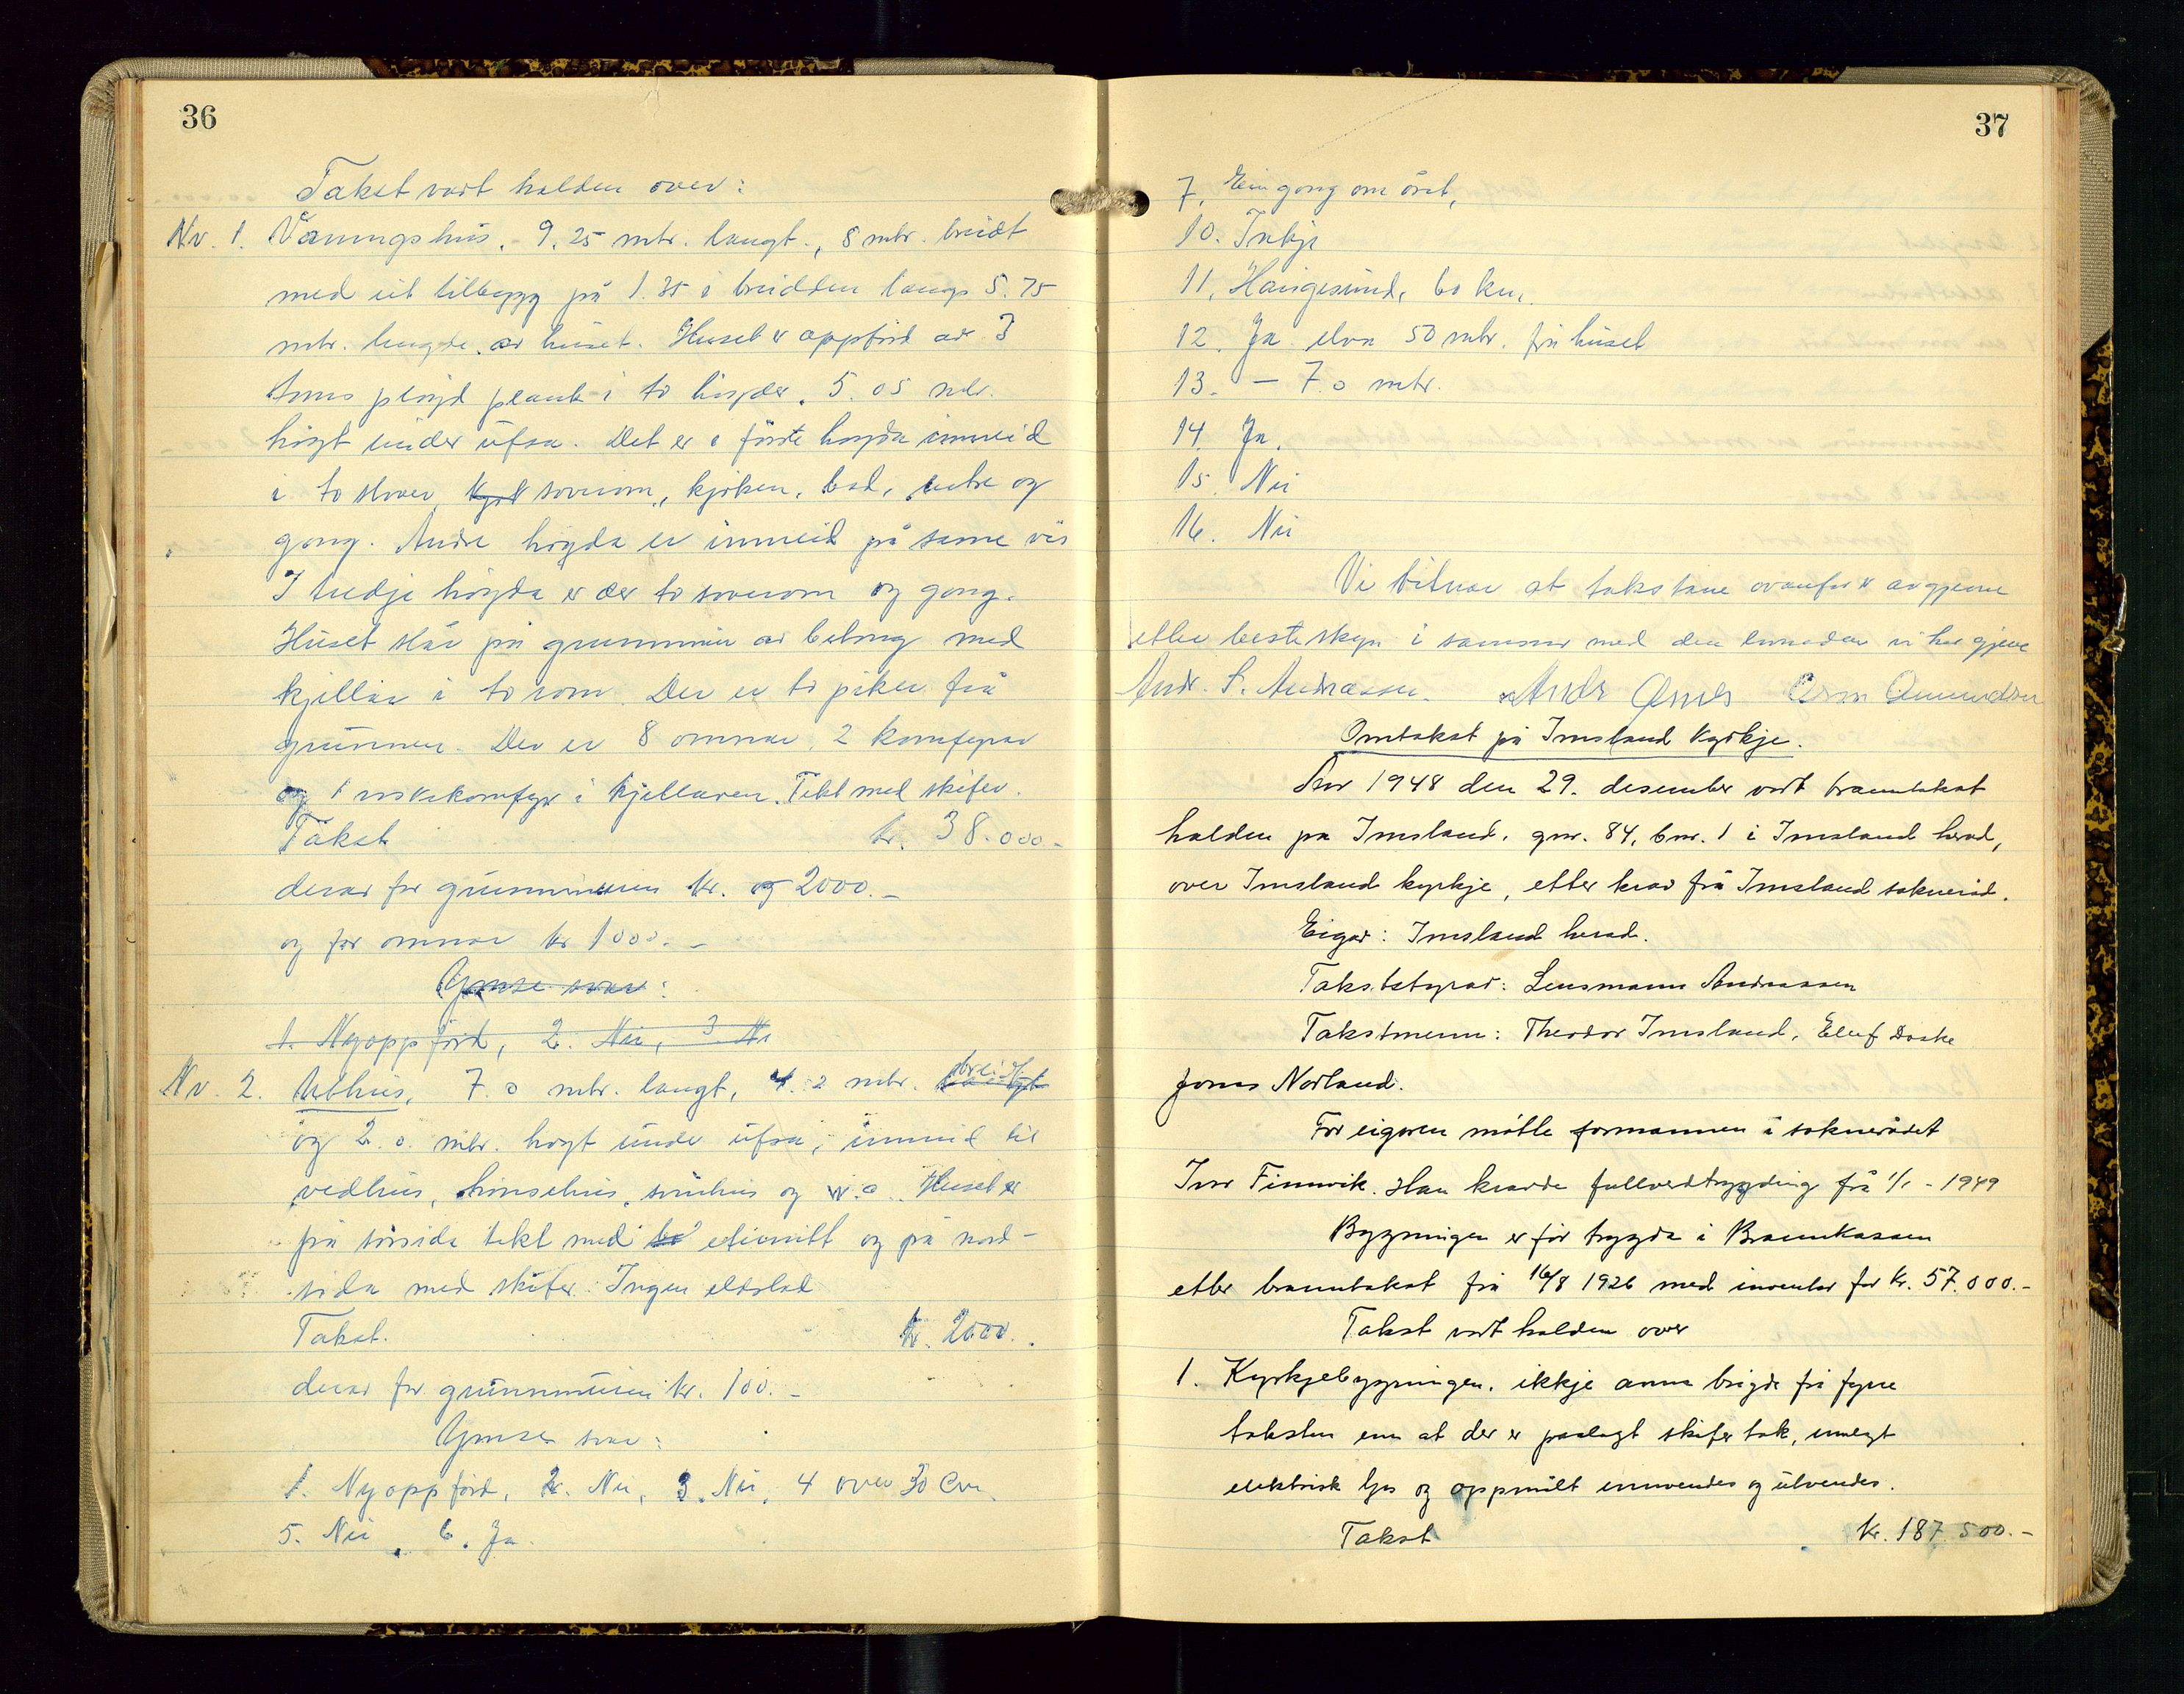 36
Takst vart halden over:
Nr. 1. Våningshus, 9,25 mtr. langt, 8 mtr. breidt
med eit tilbygg på 1.35 i breidden langs 5.75
mtr. lengde av huset. Huset er oppförd av 3
toms plögd plank i to högder. 5.05 mtr.
högt under ufsa. Det er i förste högda innreid
i to stover, soverom, kjöken, bad, entre og
gong. Andre högda er innreid på same vis
I tredje högda er der to soverom og gong.
Huset står på grunnmur av betong med
kjellar i to rom. Der er to piker frå
grunnen. Der er 8 omnar, 2 komfyrar
og 1 vaskekomfyr i kjellaren. Tekt med skifer.
Takst kr. 38.000.-
derav for grunnmuren kr. 2000.-
og for omnar kr 1000.-
Ymse svar:
1. Nyoppförd, 2. Nei, 3 Ne
Nr. 2. Uthus, 7.0 mtr. langt, 4.2 mtr. breidt
og 2.0. mtr. högt under ufsa, innreid til
vedhus, hönsehus, smuhus og w.c. Huset er
på sörsida tekt med eternitt og på nord-
sida med skifer. Ingen eldstad
Takst. kr. 2000.
derav for grunnmuren kr. 100.-
Ymse svar:
1. Nyoppförd, 2. Nei, 3. Nei, 4 over 30 cm.
5. Nei, 6. Ja.
37
7. Ein gong om året,
10. Inkje
11. Haugesund, 60 km.
12. Ja elva 50 mtr. frå huset
13. - 7.0 mtr.
14. Ja.
15. Nei
16. Nei
Vi vitnar at takstane ovanfor er avgjevne
etter beste skyn i samsvar med den lovnaden vi har gjeve
Andr. S. Andreassen. Andr Amdr Orm Amundsen
Omtakst på Imsland kyrkje.
År 1948 den 29. desember vart branntakst
halden på Imsland, gnr. 84, bnr. 1 i Imsland herad,
over Imsland kyrkje, etter krav frå Imsland sokneråd.
Eigar: Imsland herad.
Takststyrar: Lensmann Andreassen
Takstmenn: Theodor Imsland, Eluf Doske
Jonas Norland.
For eigaren mötte formannen i soknerådet
Ivar Finnvik. Han kravde fullverdtrygding frå 1/1 - 1949
Bygningen er för trygda i Brannkassen
etter branntakst frå 16/8 1926 med inventar for kr. 57.000.-
Takst vart halden over
1. Kyrkjebygningen, ikkje anna brigde frå fyrre
taksten enn at der er paalagt skifertak, innlagt
elektrisk ljos og oppmålt innvendes og utvendes.
Takst kr. 187.500.-